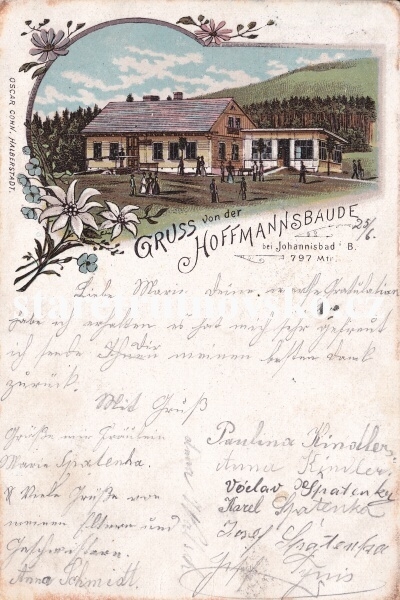 OSCAR COHN, HALBERSTADT.
GRUSS von der
HOFFMANNSBAUDE
bei Johannisbad i. B.
797 Mtr.
25/6.
Liebe Marie deine werthe Gratulation
habe ich erhalten es hat mich sehr gefreut
ich sende Dir meinen besten Dank
zurück.
Mit Gruß
Grüße von Fräulein
Marie Spatenka.
Viele Grüße von
meinen Eltern und
Geschwistern.
Anna Schmidt.
Paulina Kinzler
Anna Kinzler.
Vóclav Spatenky
Karel Spatenka
Josef Spátenka